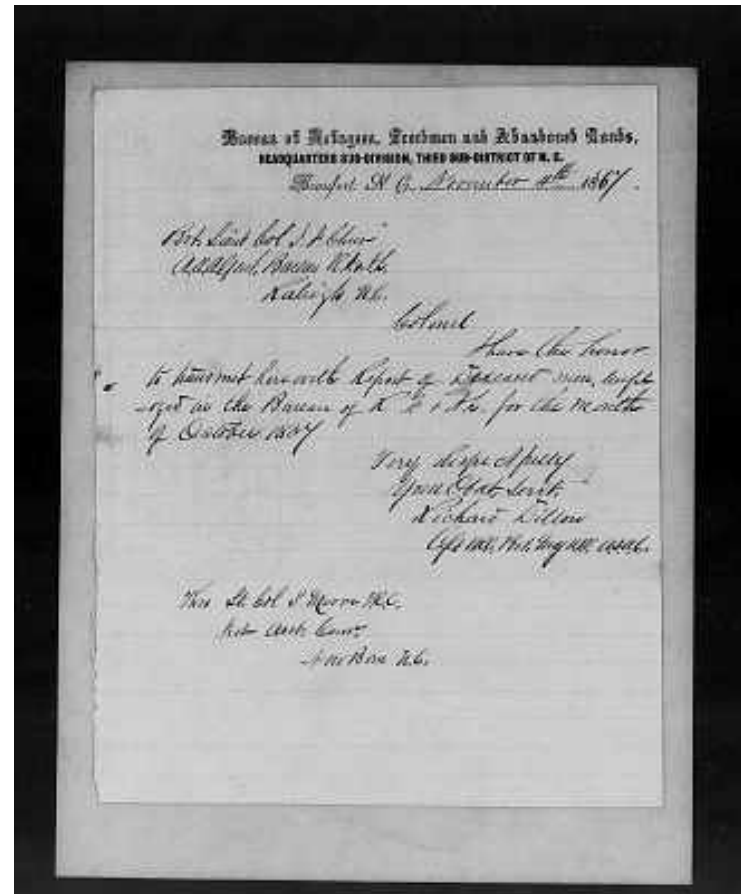 Bureau of Refugees, Freedmen and Abandoned Lands,
HEADQUARTERS SUB-DIVISION, THIRD SUB-DISTRICT OF N. C.
Beaufort N. C. November 4th 1867.
Bvt. Lieut Col J. F. Chur
Bureau R.F. & A.L.
Raleigh N.C.
Colonel
I have the honor
to transmit herewith Report of men, empl
-oyed in the Bureau of R. F. & A.L. for the month
of October 1867
Very Respectfully
Your Obdt. Servt.
Richard Dillon
Capt VRC. Bvt. Maj USV.
Thro Lt. Col
Sub Asst. Comr.
New Bern N.C.